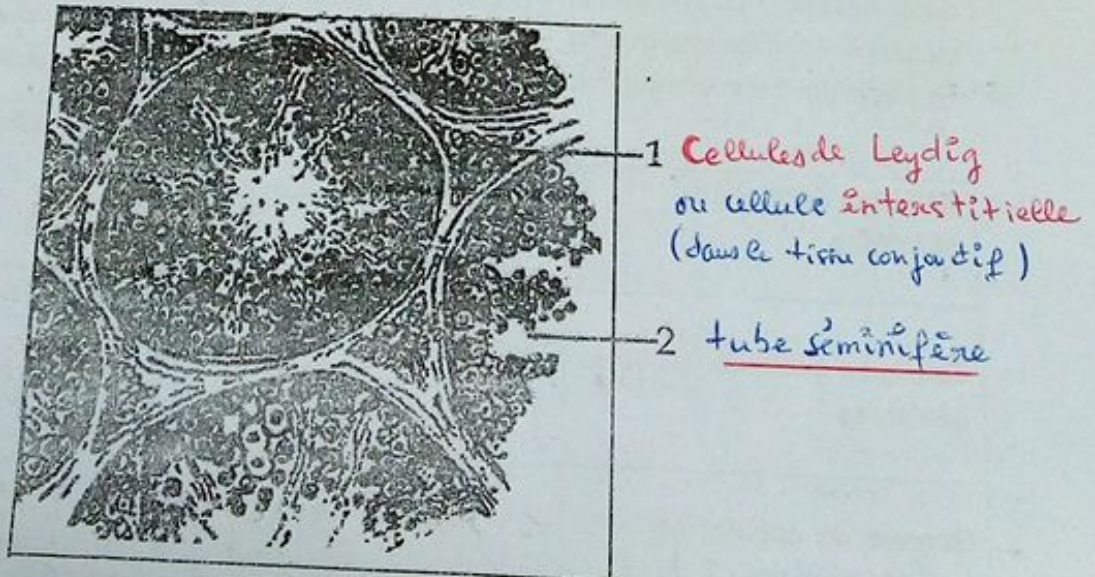 1 Cellules de Leydig
ou cellule interstitielle
(dans le tissu conjonctif)
2 tube séminifère